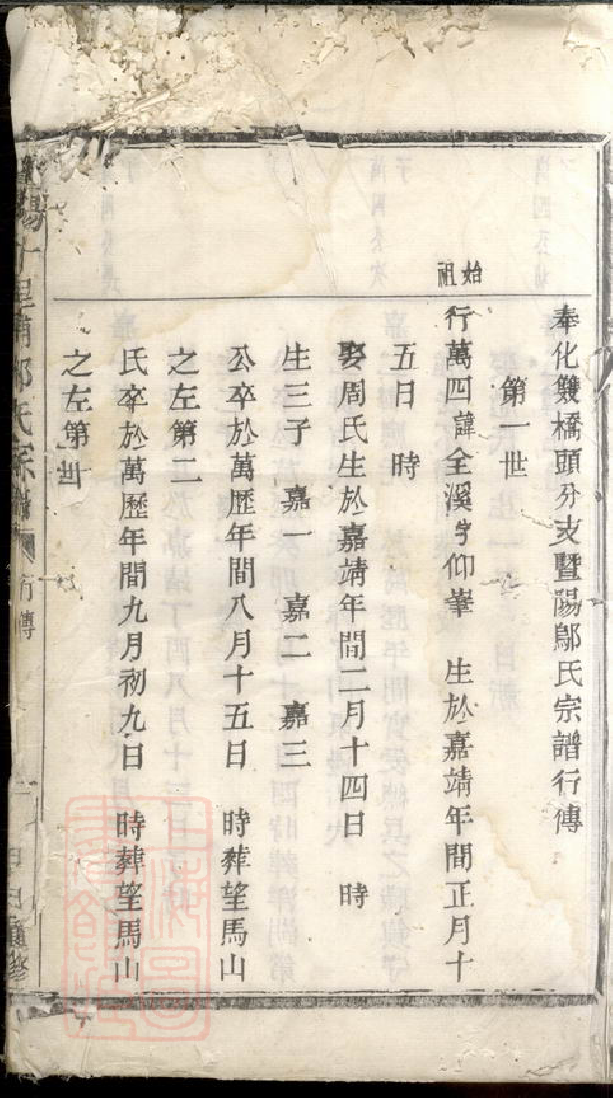 奉化雙橋頭分支暨陽鄔氏宗譜行傳
第一世
始祖
行萬四諱全溪字仰峯　生於嘉靖年間正月十
五日　時
娶周氏生於嘉靖年間二月十四日　時
生三子　嘉一　嘉二　嘉三
公卒於萬歷年間八月十五日　時葬望馬山
之左第二
氏卒於萬歷年間九月初九日　時葬望馬山
之左第
陽十里鋪鄔氏宗譜　行傳